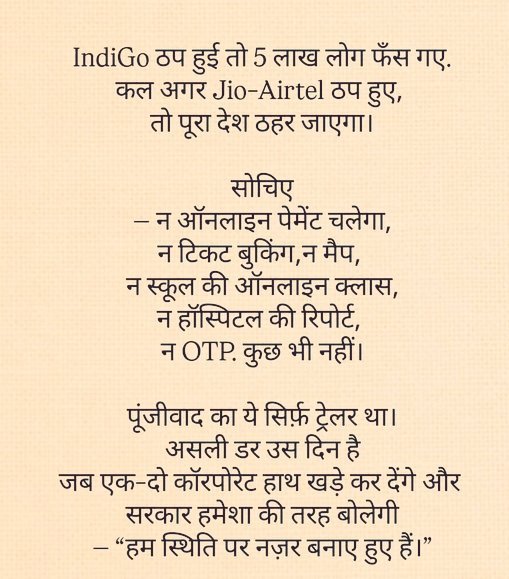 IndiGo ठप हुई तो 5 लाख लोग फँस गए.
कल अगर Jio-Airtel ठप हुए,
तो पूरा देश ठहर जाएगा।
सोचिए
– न ऑनलाइन पेमेंट चलेगा,
न टिकट बुकिंग,न मैप,
न स्कूल की ऑनलाइन क्लास,
न हॉस्पिटल की रिपोर्ट,
न OTP. कुछ भी नहीं।
पूंजीवाद का ये सिर्फ़ ट्रेलर था।
असली डर उस दिन है
जब एक-दो कॉरपोरेट हाथ खड़े कर देंगे और
सरकार हमेशा की तरह बोलेगी
– “हम स्थिति पर नज़र बनाए हुए हैं।”